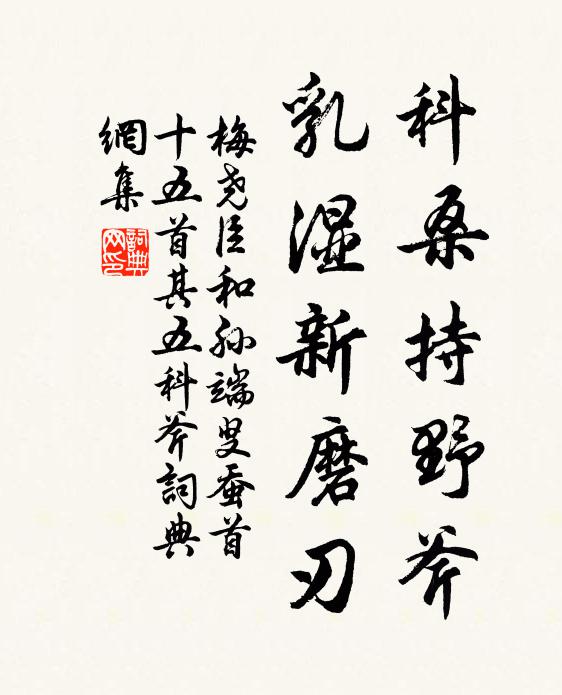 科桑持野斧
乳湿新磨刃
梅尧臣和孙端叟蚕首
十五首其五科斧詞典
網集
詞典
网印